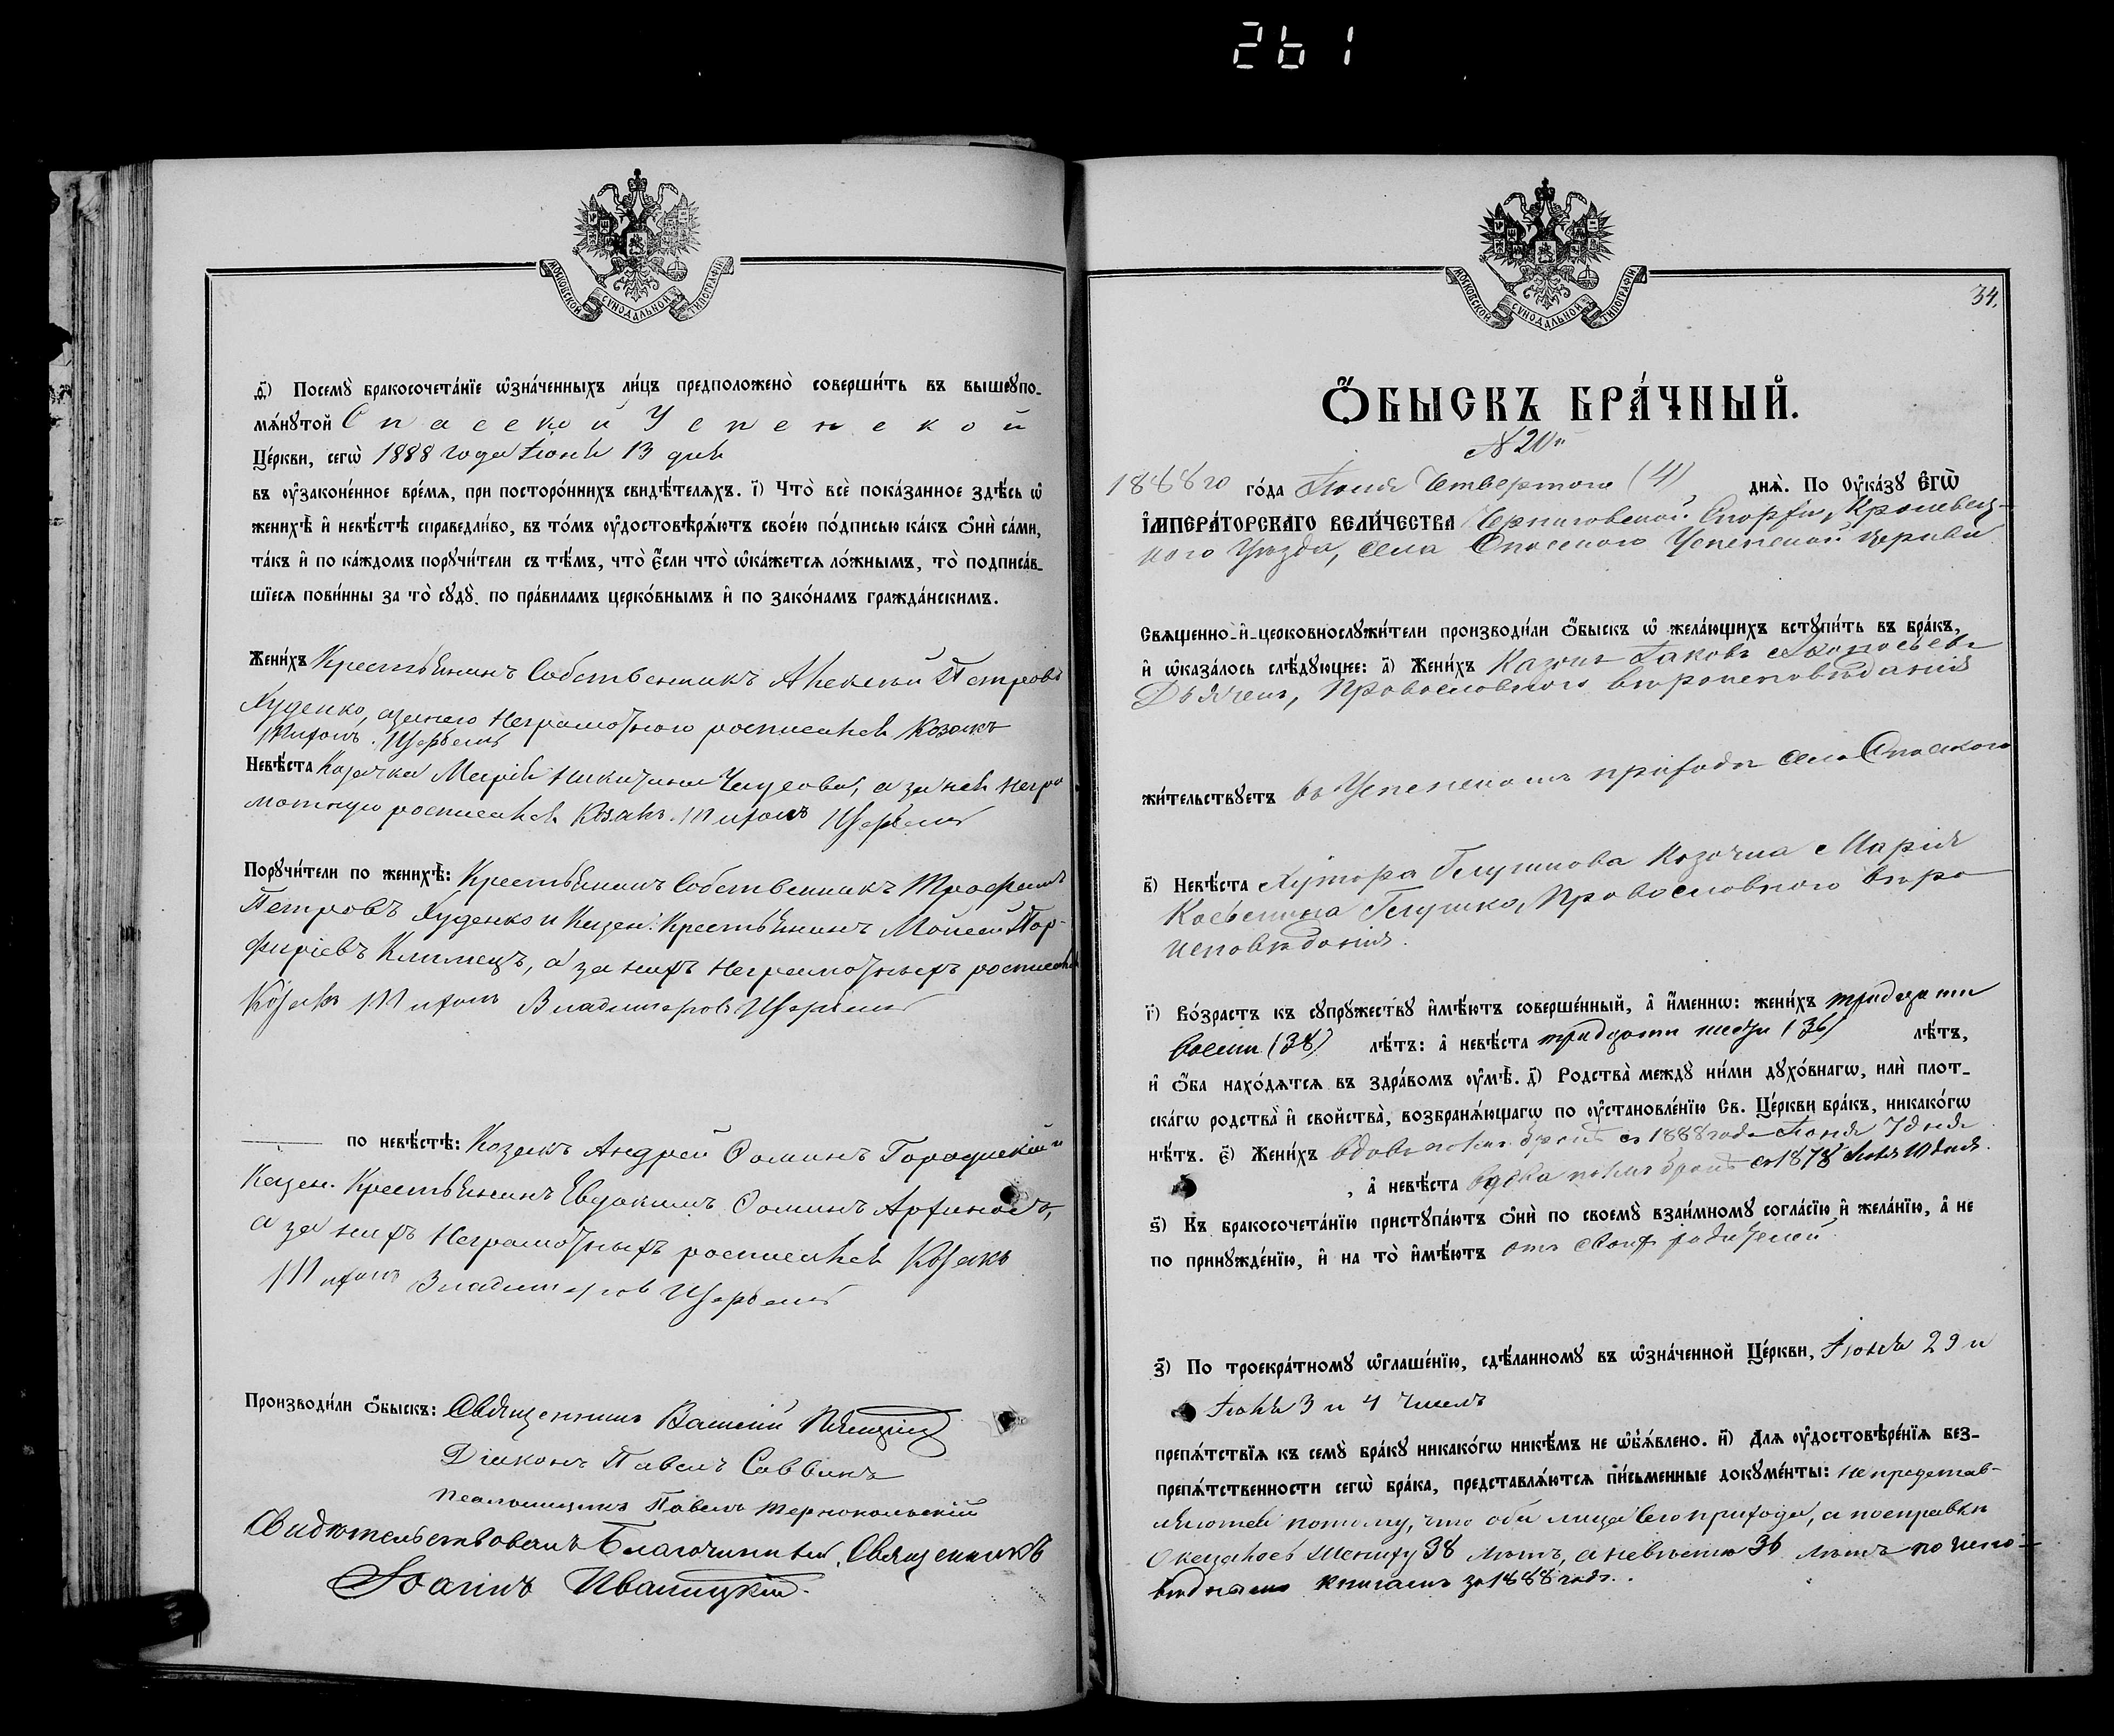 261
МОСКОВСКОЙ СѴНОДАЛЬНОЙ ТИПОГРАФІИ
д҃і) Посемꙋ̀ бракосочета́нїе ѡ҆зна́ченныхъ ли́цъ предположено̀ соверши́ть въ вышеꙋпо-
мѧ́нꙋтой Спасской Успенской
Це́ркви, сегѡ̀ 1888 года Іюня 13 дня
въ ᲂу҆законе́нное вре́мѧ, при посторо́ннихъ свидѣ́телѧхъ. і҃) Что̀ всѐ пока́занное здѣ́сь ѡ҆
женихѣ̀ и҆ невѣ́стѣ справедли́во, въ то́мъ ᲂу҆достовѣрѧ́ютъ свое́ю по́дписью ка́къ ѻ҆нѝ са́ми,
та́къ и҆ по ка́ждомъ порꙋчи́тели съ тѣ́мъ, что̀ є҆́сли что̀ ѡ҆ка́жетсѧ ло́жнымъ, то̀ подписа́в-
шїесѧ пови́нны за то̀ сꙋдꙋ̀, по пра́виламъ церко́внымъ и҆ по зако́намъ гражда́нскимъ.
Жени́хъ Крестьянинъ Собственникъ Алексѣй Петровъ
Худенко, а за него Неграмотного росписался Козакъ
Тихонъ Щербакъ
Невѣ́ста Козачка Марія Никитина, а за нея негра
мотную росписался Козакъ Тихонъ Щербакъ
Порꙋчи́тели по женихѣ̀: Крестьянинъ Собственникъ Трофимъ
Петровъ Худенко и Казен. Крестьянинъ Моисей Пор-
фиріевъ Климецъ, а за нихъ Неграмотныхъ росписался
Козакъ Тихонъ Владимеровъ Щербакъ
по невѣ́стѣ: Козакъ Андрей Ѳоминъ Городискій и
Казен. Крестьянинъ Евдокимъ Ѳоминъ,
а за нихъ Неграмотныхъ росписался Козакъ
Тихонъ Владимеров Щербакъ
Производи́ли ѻ҆́быскъ: Священникъ Василій
Діаконъ Павелъ Саввинъ
Псаломщикъ Павелъ Тернопольскій
Свидѣтельствовалъ Благочинный, Священникъ
Іоаннъ Иваницкій.
МОСКОВСКОЙ СѴНОДАЛЬНОЙ ТИПОГРАФІИ
34.
Ѻ҆́БЫСКЪ БРА́ЧНЫЙ.
№ 20й
1888го го́да Іюля Четвертого (4) днѧ̀. По Оу҆ка́зꙋ Є҆ГѠ̀
І҆МПЕРА́ТОРСКАГО ВЕЛИ́ЧЕСТВА Черниговской Епархіи, Кролевец-
кого Уѣзда, села Спасского Успенской церкви
Свѧще́нно-и҆-церковнослꙋжи́тели производи́ли ѻ҆́быскъ ѡ҆ жела́ющихъ встꙋпи́ть въ бра́къ,
и҆ ѡ҆каза́лось слѣ́дꙋющее: а҃) Жени́хъ Казакъ Іаковъ Афанасьевъ
Дьяченъ, Православного вѣроисповѣданія
жи́тельствꙋетъ въ Успенскомъ приходѣ села Спасского
в҃) Невѣ́ста Хутора Глушкова Козачка Марія
Касьянова Глушко, Православного вѣро
исповѣданія.
г҃) Во́зрастъ къ сꙋпрꙋ́жествꙋ и҆мѣ́ютъ соверше́нный, а҆ и҆́меннѡ: жени́хъ тридцати
восьми (38) лѣ́тъ: а҆ невѣ́ста тридцати шести (36) лѣ́тъ,
и҆ ѻ҆́ба нахо́дѧтсѧ въ здра́вомъ ᲂу҆мѣ̀. д҃) Родства̀ междꙋ̀ ни́ми дꙋхо́внагѡ, илѝ плот-
ска́гѡ родства̀ и҆ свойства̀, возбранѧ́ющагѡ по ᲂу҆становле́нїю Св. Це́ркви бра́къ, никако́гѡ
нѣ́тъ. є҃) Жени́хъ вдовъ по 1мъ бракѣ съ 1888 года Іюня 7 дня
, а҆ невѣ́ста вдова по 1мъ бракѣ съ 1878 10 дня.
ѕ҃) Къ бракосочета́нїю пристꙋпа́ютъ ѻ҆нѝ по своемꙋ̀ взаи́мномꙋ согла́сїю и҆ жела́нїю, а҆ не
по принꙋжде́нїю, и҆ на то̀ и҆мѣ́ютъ отъ своихъ родителей
з҃) По троекра́тномꙋ ѡ҆глаше́нїю, сдѣ́ланномꙋ въ ѡ҆зна́ченной Це́ркви, Іюня 29 и
Іюля 3 и 4 Чиселъ
препѧ́тствїѧ къ семꙋ̀ бра́кꙋ никако́гѡ никѣ́мъ не ѡ҆б̾ѧ́влено. и҃) Длѧ ᲂу҆достовѣре́нїѧ без-
препѧ́тственности сегѡ̀ бра́ка, представлѧ́ютсѧ пи́сьменные докꙋме́нты: не представ-
ляются потому, что оба лица сего прихода, а по справкѣ
Оказалось Жениху 38 лѣтъ, а невѣстѣ 36 лѣтъ по испо-
вѣднымъ книгамъ за 1888 годъ.